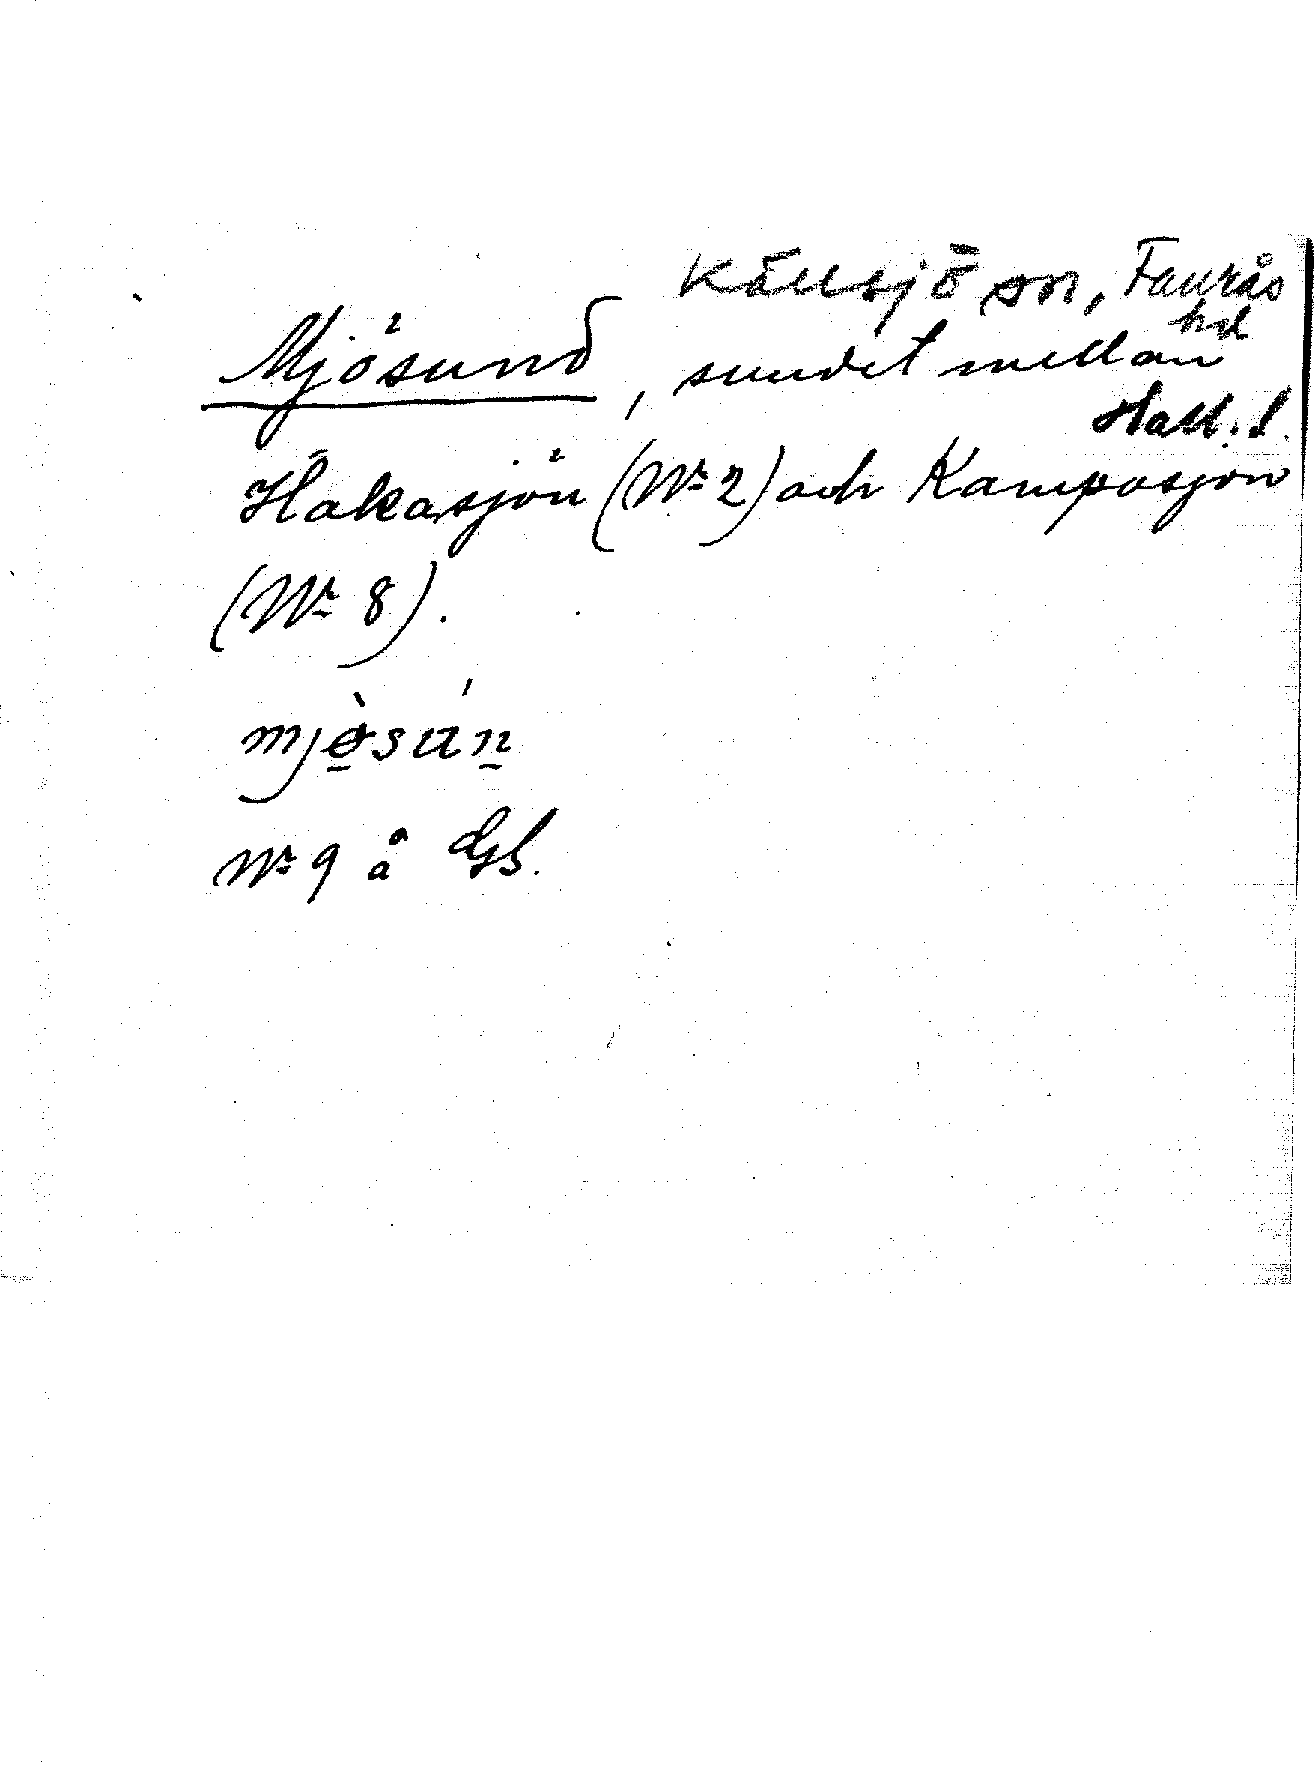 Källsjö sn, Faurås
hd
Hall. l.
Mjösund, sundet mellan
Hakasjön (Nr 2) och Kamposjön
(Nr 8).
Nr 9 å GS.